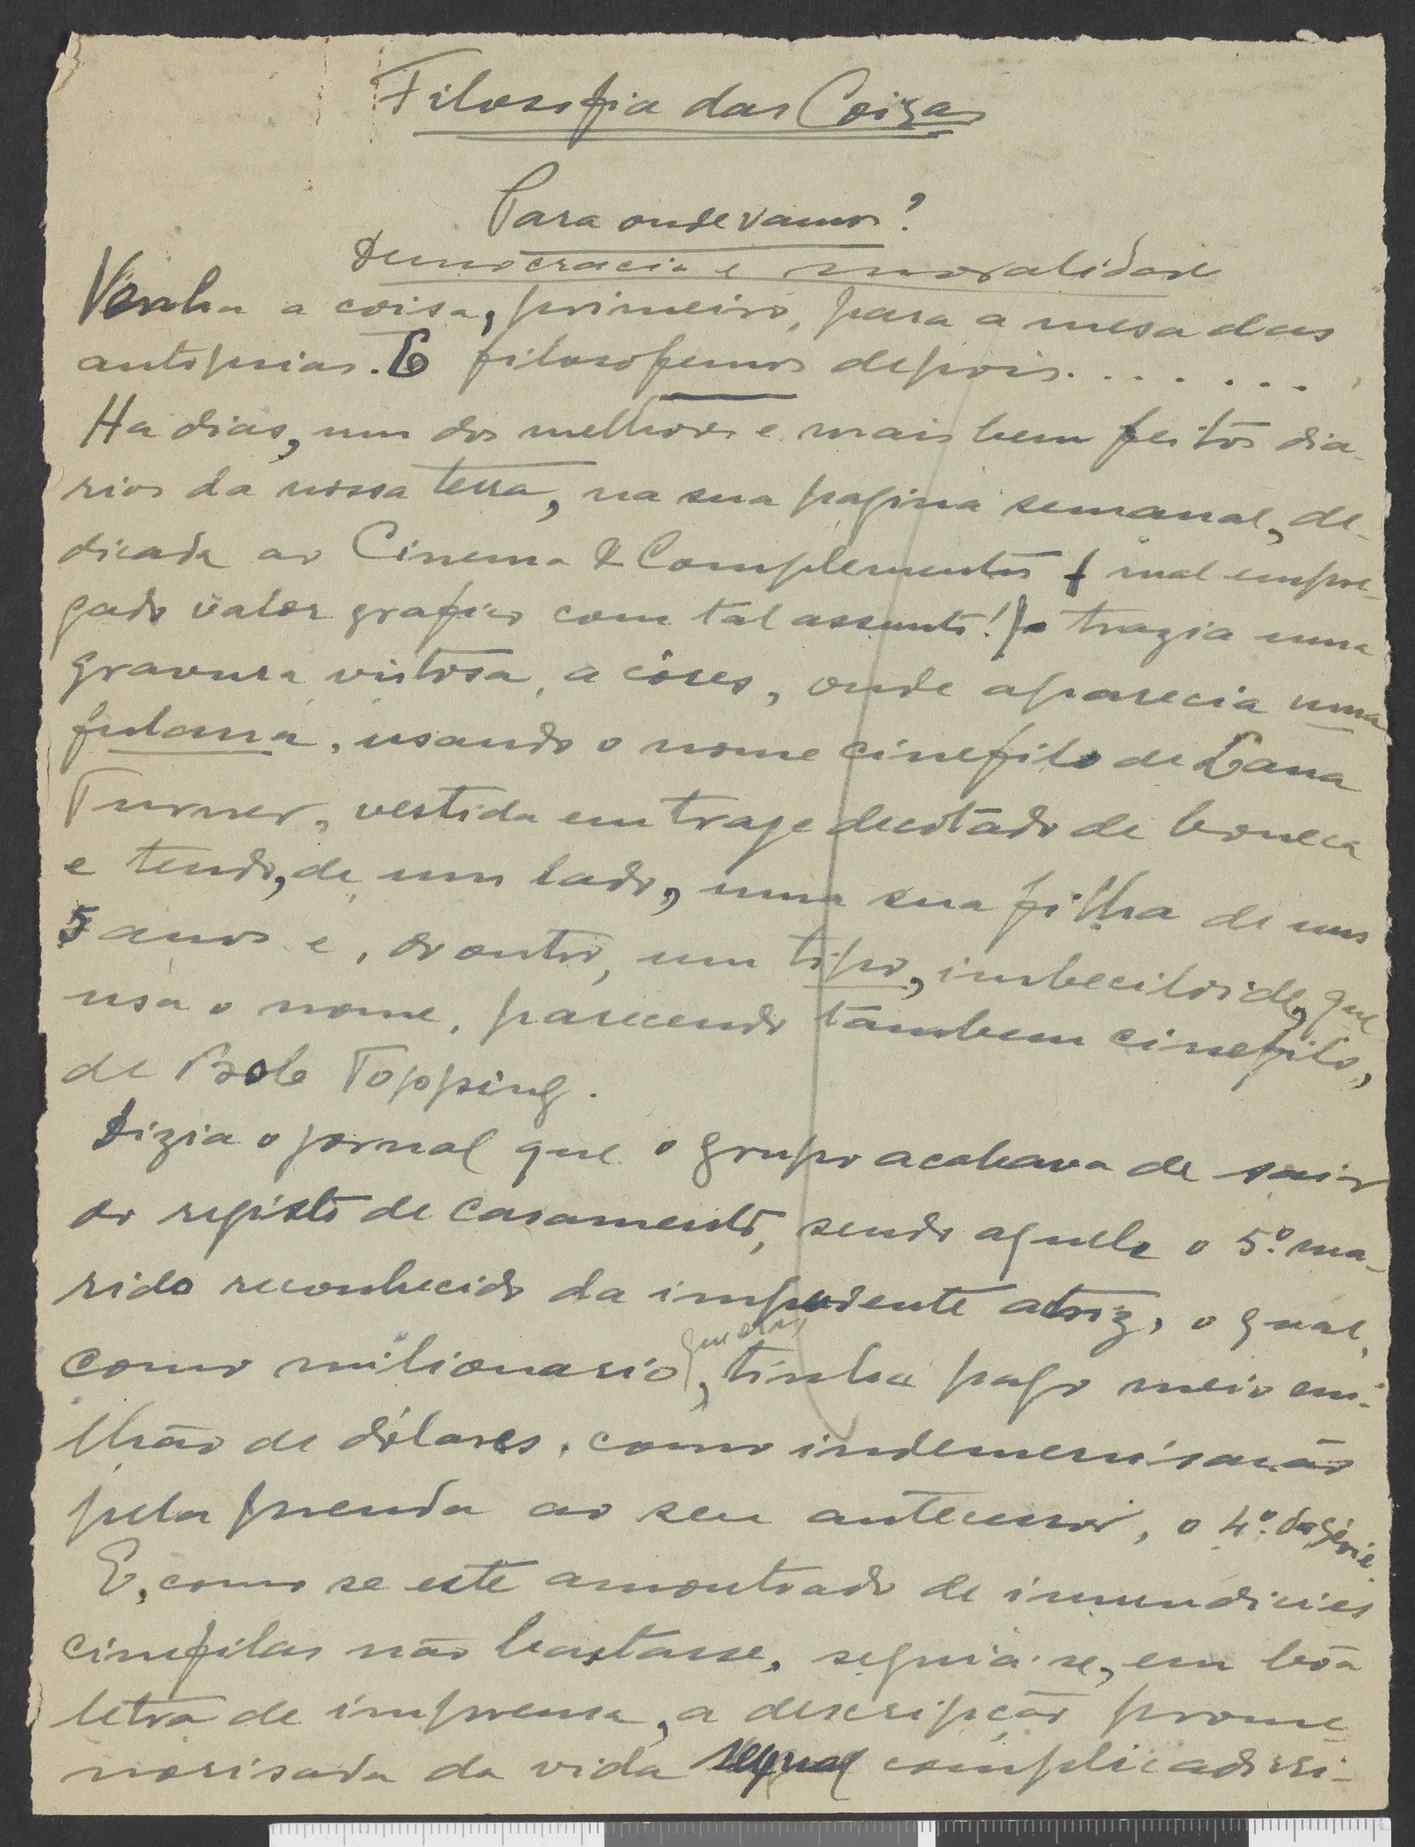 Filosofia das Coisas
Para onde vamos?
Democracia e moralidade
Venha a coisa, primeiro, para a mesa das
autopsias. E filosofemos depois.......
Ha dias, um dos melhores e mais bem feitos dia-
rios da nossa terra, na sua pagina semanal, de-
dicada ao Cinema & Complementos (mal empre-
gado valor grafico com tal assunto!) trazia uma
gravura vistosa, a côres, onde aparecia uma
fulana, usando o nome cinefilo de Lana
Turner, vestida em traje decotado de boneca
e tendo, de um lado, uma sua filha de uns
5 anos e, do outro, um tipo, imbeciloide, que
usa o nome, parecendo tambem cinefilo,
de Bob Topping.
Dizia o jornal que o grupo acabava de sair
do registo de casamento, sendo aquele o 5.º ma-
rido reconhecido da impudente atriz, o qual,
como milionario, tinha pago meio mi-
lhão de dólares, como indemenisacão
pela prenda ao seu antecessor, o 4.º da série.
E, como se este amontoado de imundicies
cinefilas não bastasse, seguia-se, em bôa
letra de imprensa, a descripcão prome-
norisada da vida sexual complicadissi-